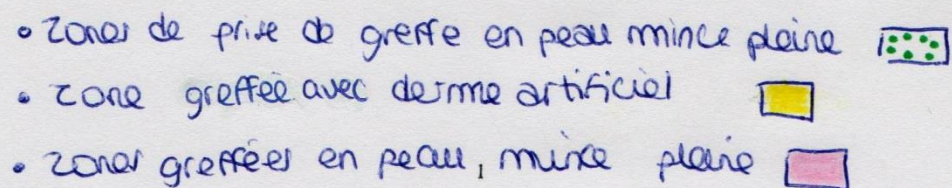 • Zones de prise de greffe en peau mince pleine
• zone greffée avec derme artificiel
• zones greffées en peau, mince pleine